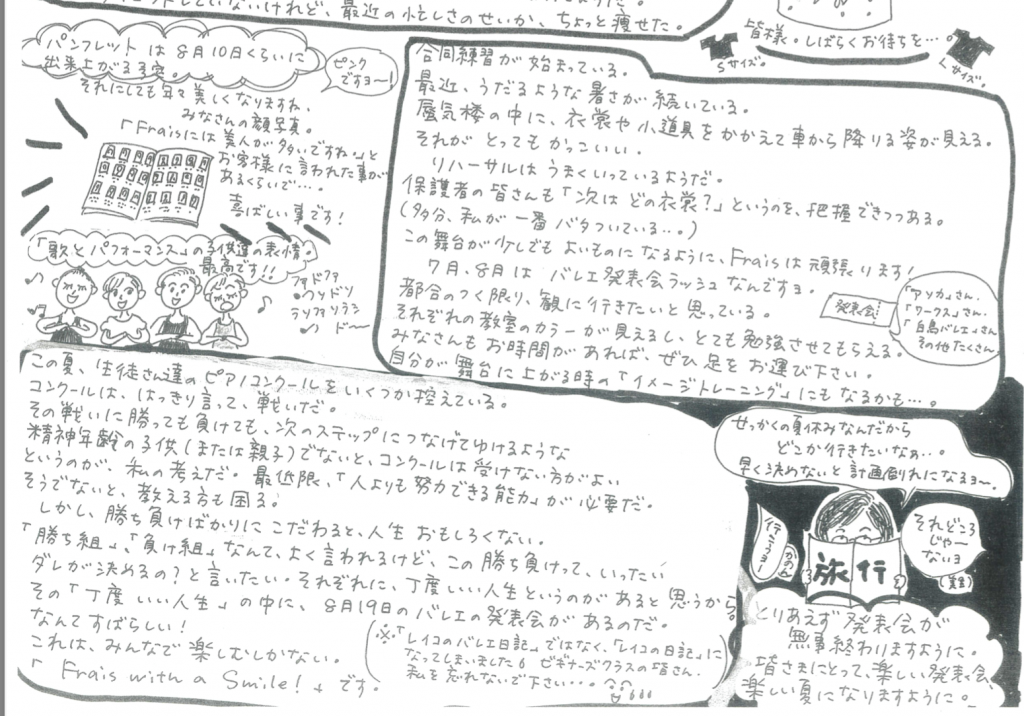 していないけれど、最近の忙しさのせいか、ちょっと痩せた。
皆様。しばらくお待ちを…。
Sサイズ。
Lサイズ。
パンフレットは8月10日くらいに
出来上がる予定。
ピンク
ですョ〜!
それにしても年々美しくなりますね、
みなさんの顔写真。
「Fraisには美人が多いですね。」と
お客様に言われた事が
あるくらいで…。
喜ばしい事です!
「歌とパフォーマンス」の子供達の表情。
最高です!!
合同練習が始まっている。
最近、うだるような暑さが続いている。
蜃気楼の中に、衣裳や小道具をかかえて車から降りる姿が見える。
それがとってもかっこいい。
リハーサルはうまくいっているようだ。
保護者の皆さんも「次はどの衣裳?」というのを、把握できつつある。
(多分、私が一番バタついている…。)
この舞台が少しでもよいものになるように、Fraisは頑張ります!
7月、8月はバレエ発表会ラッシュなんですョ。
都合のつく限り、観に行きたいと思っている。
それぞれの教室のカラーが見えるし、とても勉強させてもらえる。
みなさんもお時間があれば、ぜひ足をお運び下さい。
自分が舞台に上がる時の「イメージトレーニング」にもなるかも…。
発表会
「アンカ」さん、
「ワークス」さん、
「白鳥バレエ」さん
その他たくさん
この夏、生徒さん達のピアノコンクールをいくつか控えている。
コンクールは、はっきり言って、戦いだ。
その戦いに勝っても負けても、次のステップにつなげてゆけるような
精神年齢の子供(または親子)でないと、コンクールは受けない方がよい
というのが、私の考えだ。最低限、「人よりも努力できる能力」が必要だ。
そうでないと、教える方も困る。
しかし、勝ち負けばかりにこだわると、人生おもしろくない。
「勝ち組」、「負け組」なんて、よく言われるけど、この勝ち負けって、いったい
ダレが決めるの?と言いたい。それぞれに、丁度いい人生というのがあると思うから。
その「丁度いい人生」の中に、8月19日のバレエの発表会があるのだ。
なんてすばらしい!
これは、みんなで楽しむしかない。
「Frais with a Smile!」です。
(※「レイコのバレエ日記」ではなく、「レイコの日記」に
なってしまいました。ビギナーズクラスの皆さん、
私を忘れないで下さい…。)
せっかくの夏休みなんだから
どこか行きたいなぁ…。
早く決めないと計画倒れになるョ〜。
行こうョー
かのん
旅行
それどころ
じゃ〜
ないョ
とりあえず発表会が
無事終わりますように。
皆さまにとって、楽しい発表会、
楽しい夏になりますように。